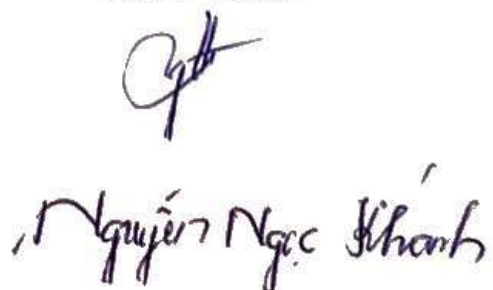 Nguyễn Ngọc Khánh